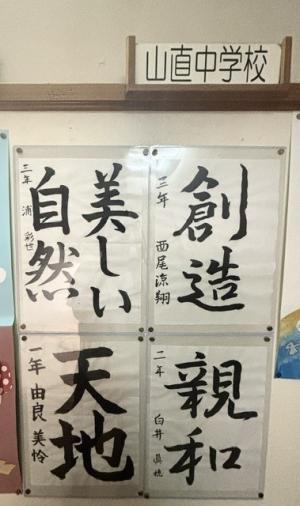 山直中学校
創造
三年 西尾涼翔
美しい
自然
三年 浦 彩世
親和
二年 白井
天地
一年 由良美怜